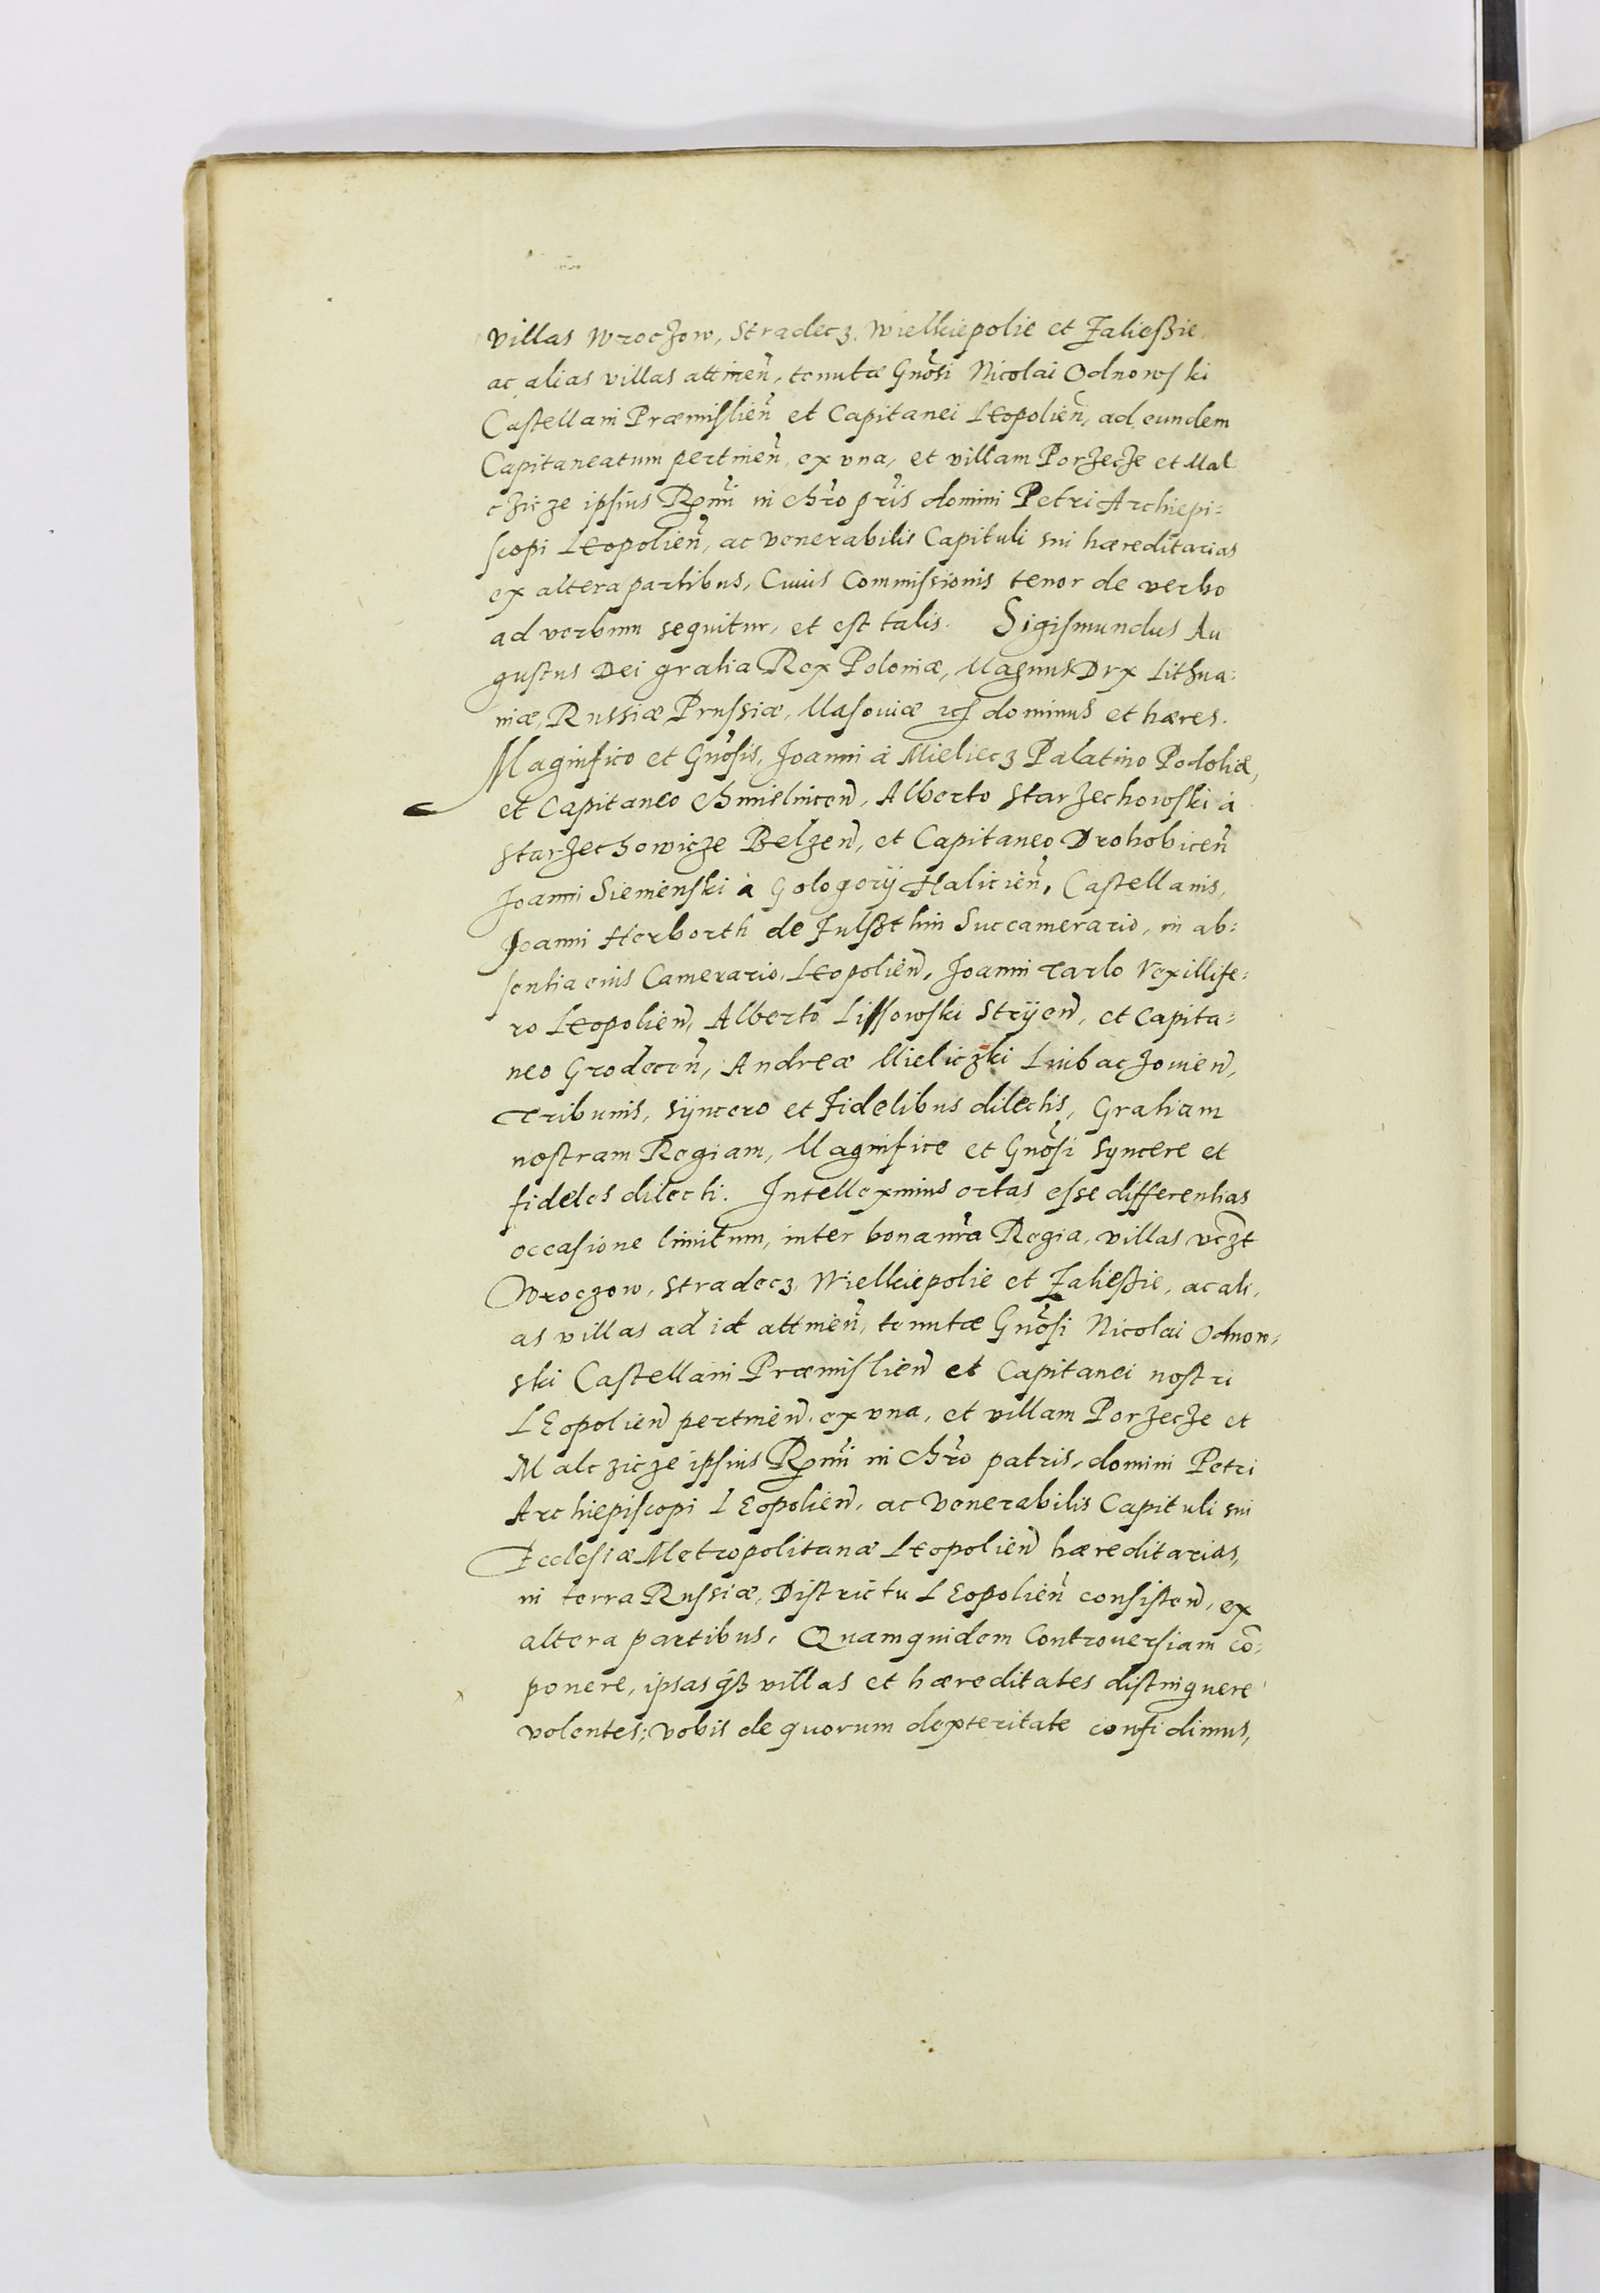 villas Wroczow, Stradecz, Wielkiepolie et Zalieszie
ac alias villas attineñ, tenutæ Gnõsi Nicolai Odnowski
Castellani Præmisslieñ et Capitanei Leopolieñ, ad eundem
Capitaneatum pertineñ, ex una, et villam Porzecze et Mal
czicze ipsius Rmi in Chro pris domini Petri Archiepi=
scopi Leopolieñ, ac venerabilis Capituli sui hæreditarias
ex altera partibus, Cuius Commissionis tenor de verbo
ad verbum sequitur, et est talis. Sigismundus Au
gustus Dei gratia Rex Poloniæ, Magnus Dux Lithua=
niæ, Russiæ, Prussiæ, Masoviæ etc dominus et hæres.
Magnifico et Gnõsis, Joanni à Mieliecz Palatino Podoliæ,
et Capitaneo Chmielniceñ, Alberto Starzechowski à
Starzechowicze Belzeñ, et Capitaneo Drohobiceñ
Joanni Siemienski à Gologory Halicieñ, Castellanis,
Joanni Herborth de Fulszthin Succamerario, in ab=
sentia eius Camerario, Leopolieñ, Joanni Tarlo Vexillife=
ro Leopolieñ, Alberto Lissowski Stryeñ, et Capita=
neo Grodeceñ, Andreæ Mieliczki Lubaczowieñ,
Tribunis, syncero et fidelibus dilectis, Gratiam
nostram Regiam, Magnifice et Gnõsi syncere et
fideles dilecti. Intelleximus ortas esse differentias
occasione limitum, inter bona nra Regia, villas vczt
Wroczow, Stradecz, Wielkiepolie et Zalieszie, ac ali,
as villas ad id attineñ, tenutæ Gnõsi Nicolai Odnow=
ski Castellani Præmisslieñ et Capitanei nostri
LEopolieñ pertineñ, ex una, et villam Porzecze et
Malczicze ipsius Rmi in Chro patris, domini Petri
Archiepiscopi LEopolieñ, ac Venerabilis Capituli sui
Ecclesiæ Metropolitanæ Leopolieñ hæreditarias,
in terra Russiæ, Districtu LEopolieñ consisteñ, ex
altera partibus, Quamquidem Controuersiam cõ=
ponere, ipsasqz villas et hæreditates distinguere
volentes; vobis de quorum dexteritate confidimus,